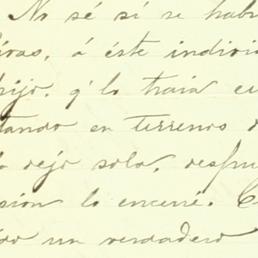 No sé si se hab
ivas, á éste indivi
hijo, q' lo traia cu
tando en terrenos d
lo dejo solo, despu
sión lo encerré. C
ido un verdadero